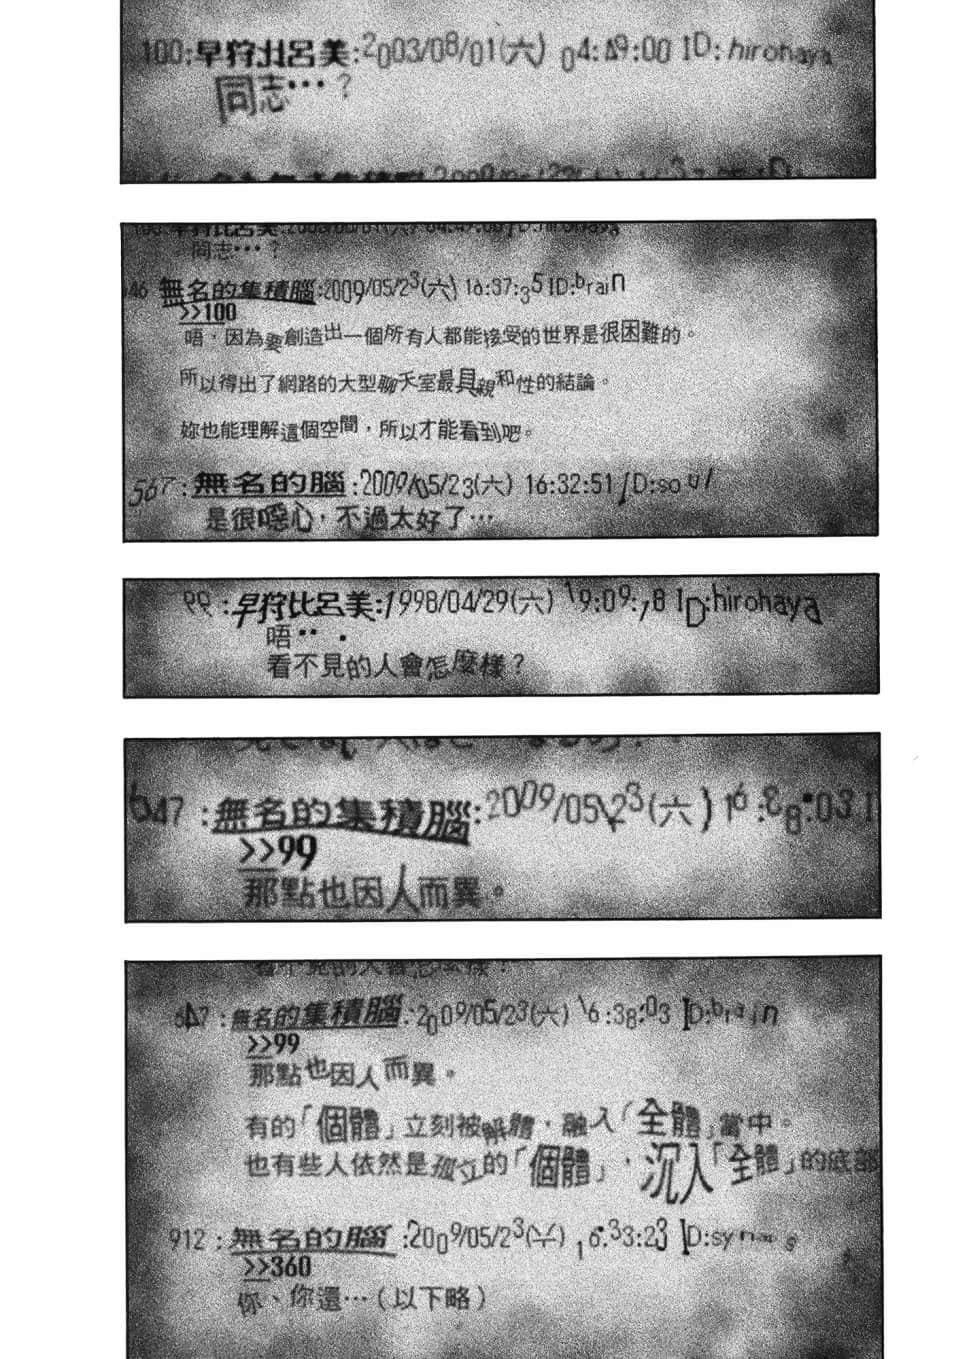 100:早狩比呂美:2003/08/01(六) 04:49:00 ID:hirohaya
同志…?
同志…?
646 無名的集積腦:2009/05/23(六) 16:37:35 ID:brain
>>100
唔,因為要創造出一個所有人都能接受的世界是很困難的。
所以得出了網路的大型聊天室最具親和性的結論。
妳也能理解這個空間,所以才能看到吧。
567:無名的腦:2009/05/23(六) 16:32:51 ID:soul
是很噁心,不過太好了…
99:早狩比呂美:1998/04/29(六) 19:09:18 ID:hirohaya
唔…
看不見的人會怎麼樣?
647:無名的集積腦:2009/05/23(六) 16:38:03 I
>>99
那點也因人而異。
看不見的人會怎麼樣?
647:無名的集積腦:2009/05/23(六) 16:38:03 ID:brain
>>99
那點也因人而異。
有的「個體」立刻被解體,融入「全體」當中。
也有些人依然是孤立的「個體」,沉入「全體」的底部
912:無名的腦:2009/05/23(六) 16:33:23 ID:synaps
>>360
你、你還…(以下略)